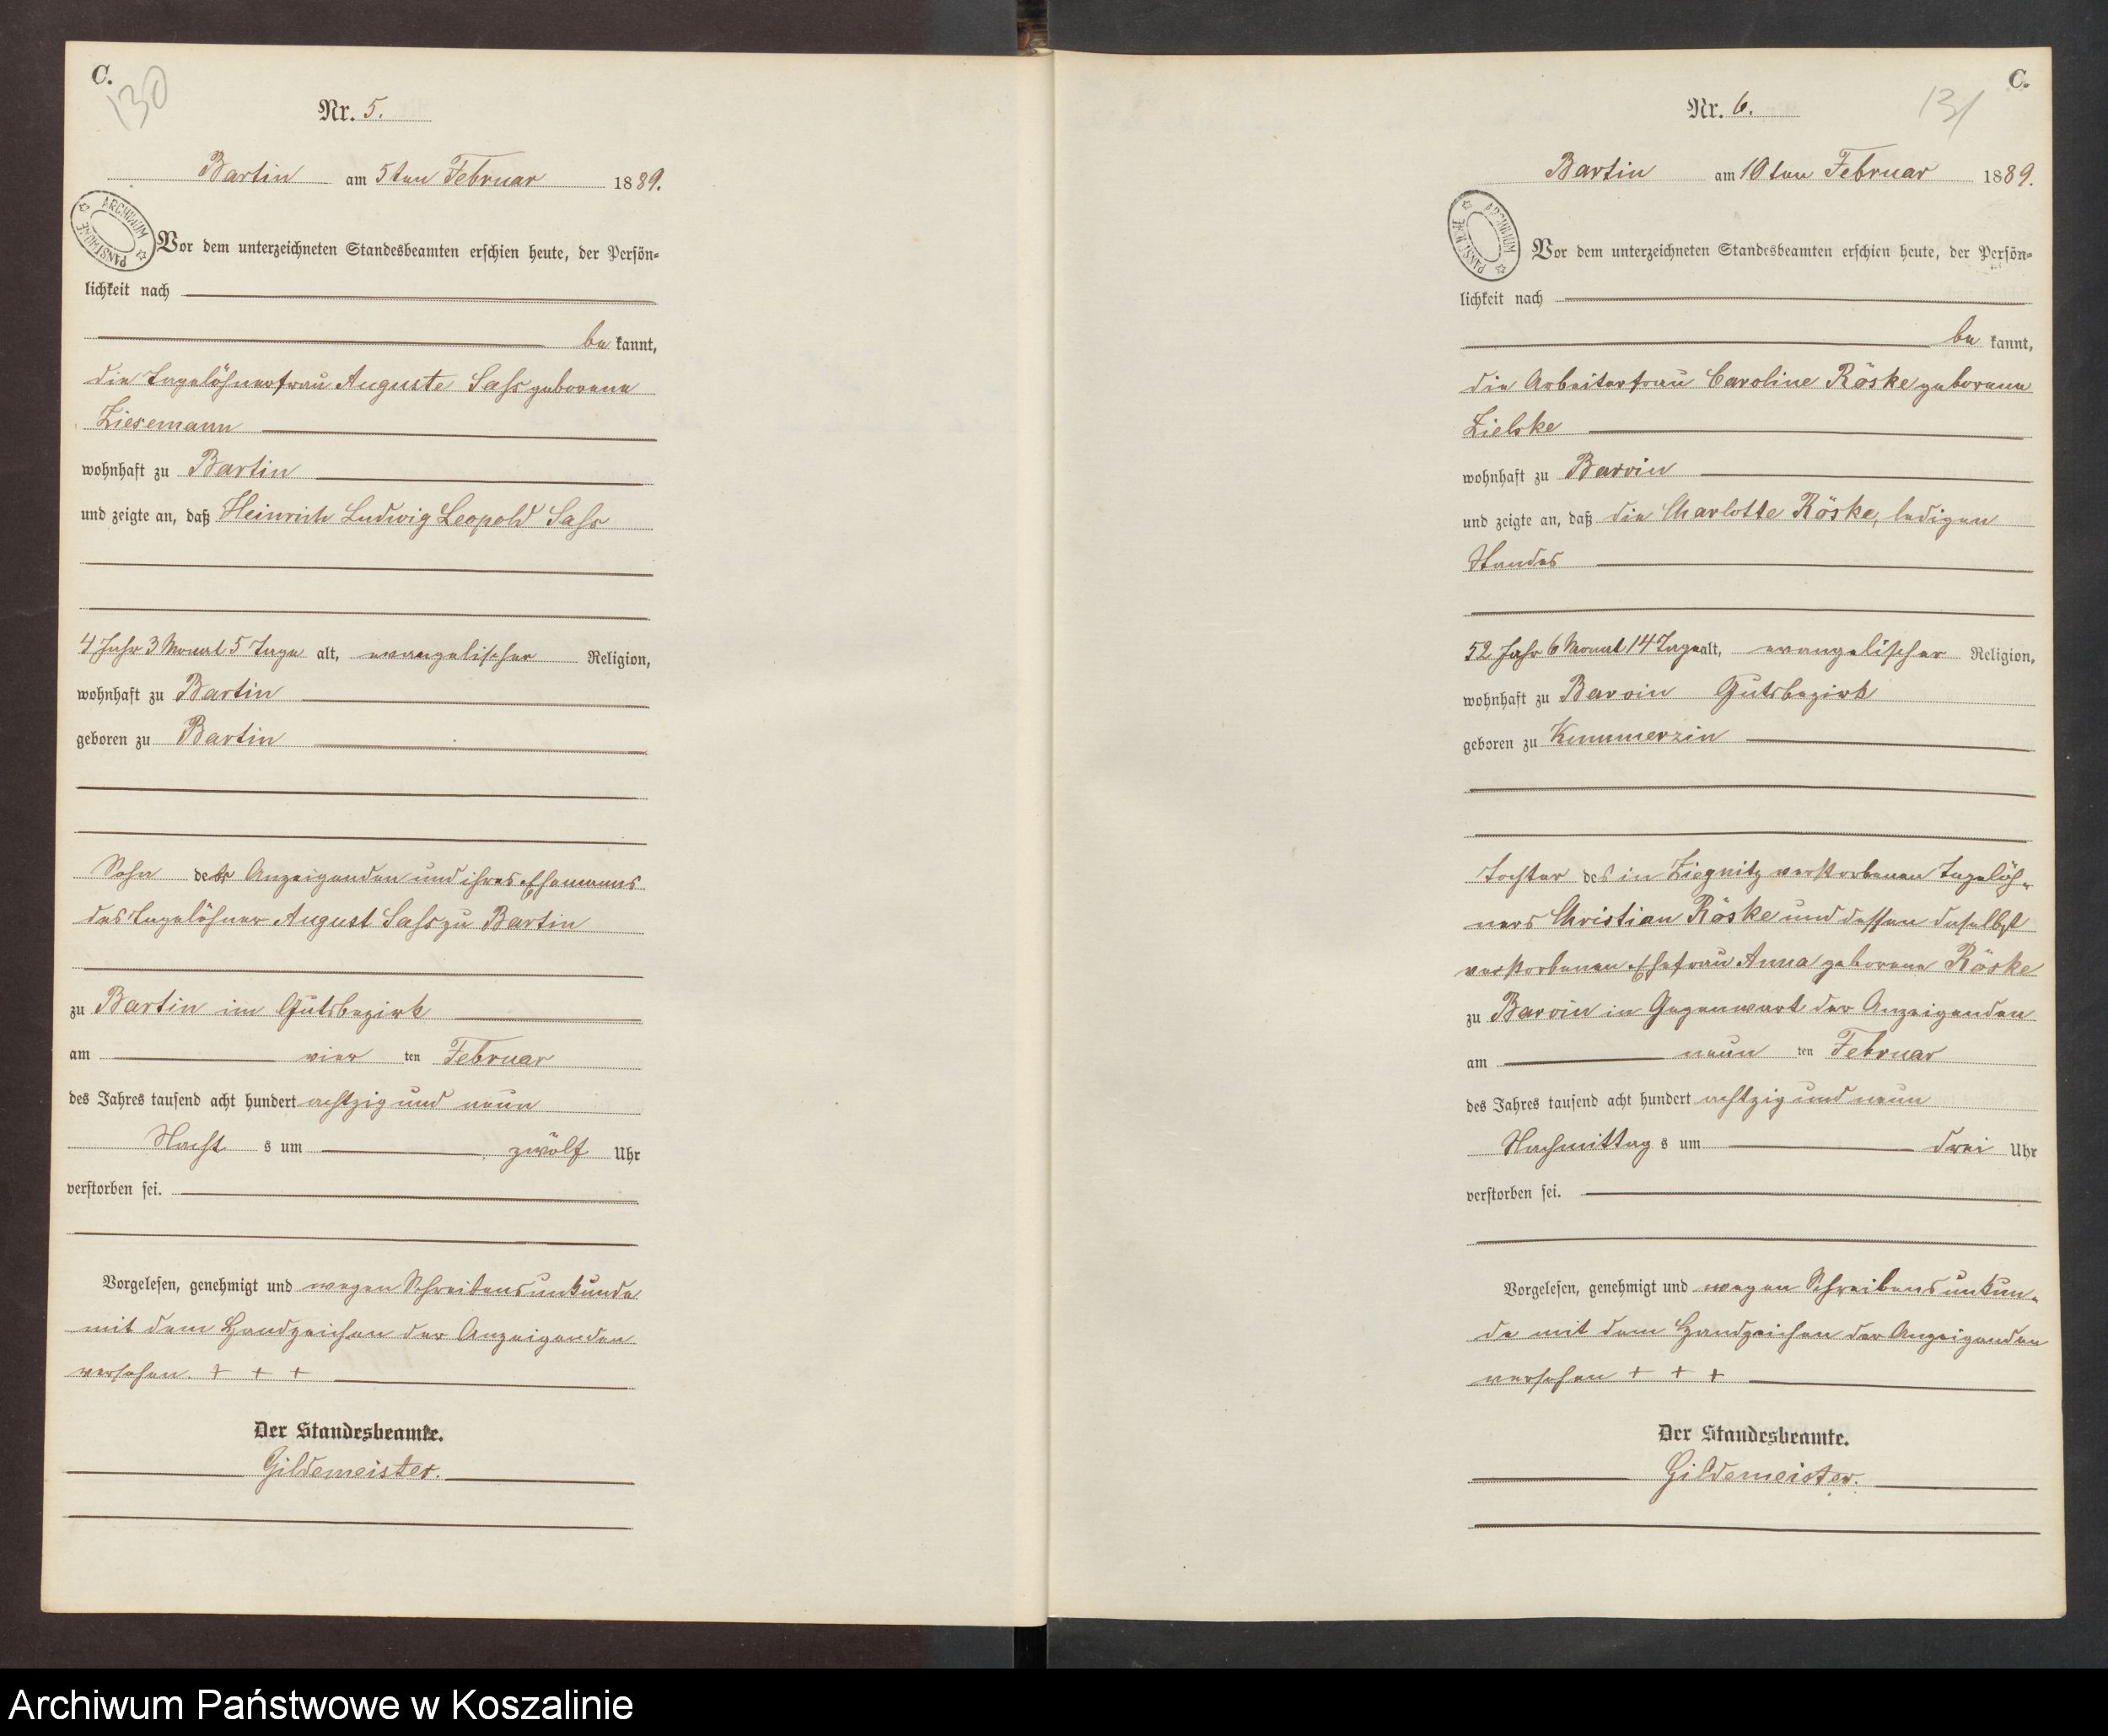 C.
130
Nr. 5.
Bartin am 5ten Februar 1889.
ARCHIWUM PAŃSTWOWE
Vor dem unterzeichneten Standesbeamten erschien heute, der Persön-
lichkeit nach
be kannt,
die Tagelöhnerfrau Auguste Sass geborene
Ziesemann
wohnhaft zu Bartin
und zeigte an, daß Heinrich Ludwig Leopold Sass
4 Jahr 3 Monat 5 Tage alt, evangelischer Religion,
wohnhaft zu Bartin
geboren zu Bartin
Sohn der Anzeigenden und ihres Ehemanns
des Tagelöhner August Sass zu Bartin
zu Bartin im Gutsbezirk
am vier ten Februar
des Jahres tausend acht hundert achtzig und neun
Nacht s um zwölf Uhr
verstorben sei.
Vorgelesen, genehmigt und wegen Schreibensunkunde
mit dem Handzeichen der Anzeigenden
versehen. + + +
Der Standesbeamte.
Gildemeister.
C.
131
Nr. 6.
Bartin am 10ten Februar 1889.
ARCHIWUM PAŃSTWOWE
Vor dem unterzeichneten Standesbeamten erschien heute, der Persön-
lichkeit nach
be kannt,
die Arbeiterfrau Caroline Röske geborene
Zielske
wohnhaft zu Barvin
und zeigte an, daß die Charlotte Röske, ledigen
Standes
52 Jahr 6 Monat 14 Tage alt, evangelischer Religion,
wohnhaft zu Barvin Gutsbezirk
geboren zu Kummerzin
Tochter des in Ziegnitz verstorbenen Tagelöh-
ners Christian Röske und dessen daselbst
verstorbenen Ehefrau Anna geborene Röske
zu Barvin in Gegenwart der Anzeigenden
am neun ten Februar
des Jahres tausend acht hundert achtzig und neun
Nachmittag s um drei Uhr
verstorben sei.
Vorgelesen, genehmigt und wegen Schreibensunkun-
de mit dem Handzeichen der Anzeigenden
versehen + + +
Der Standesbeamte.
Gildemeister.
Archiwum Państwowe w Koszalinie